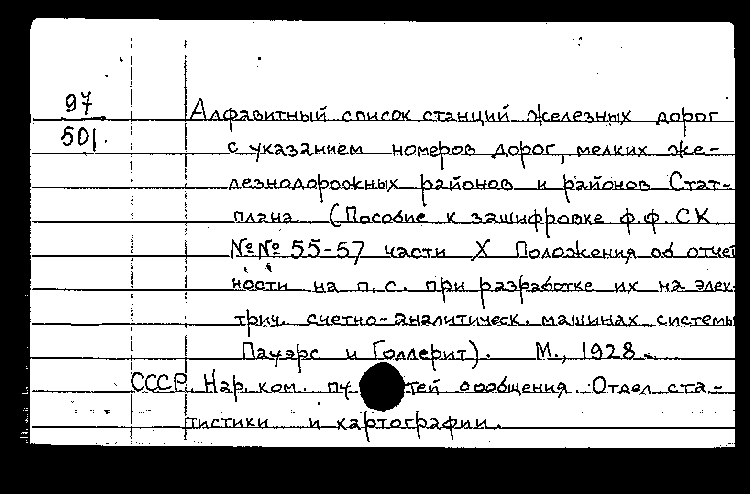 97
501.
Алфавитный список станций железных дорог
с указанием номеров дорог, мелких же-
лезнодорожных районов и районов Стат-
плана (Пособие к зашифровке ф.ф. СК
№№ 55-57 части X Положения об отчет
ности на п.с. при разработке их на элек-
трич. счетно-аналитическ. машинах системы
Пауэрс и Голлерит). М., 1928.
СССР. Нар. ком. пу тей сообщения. Отдел ста-
тистики и картографии.